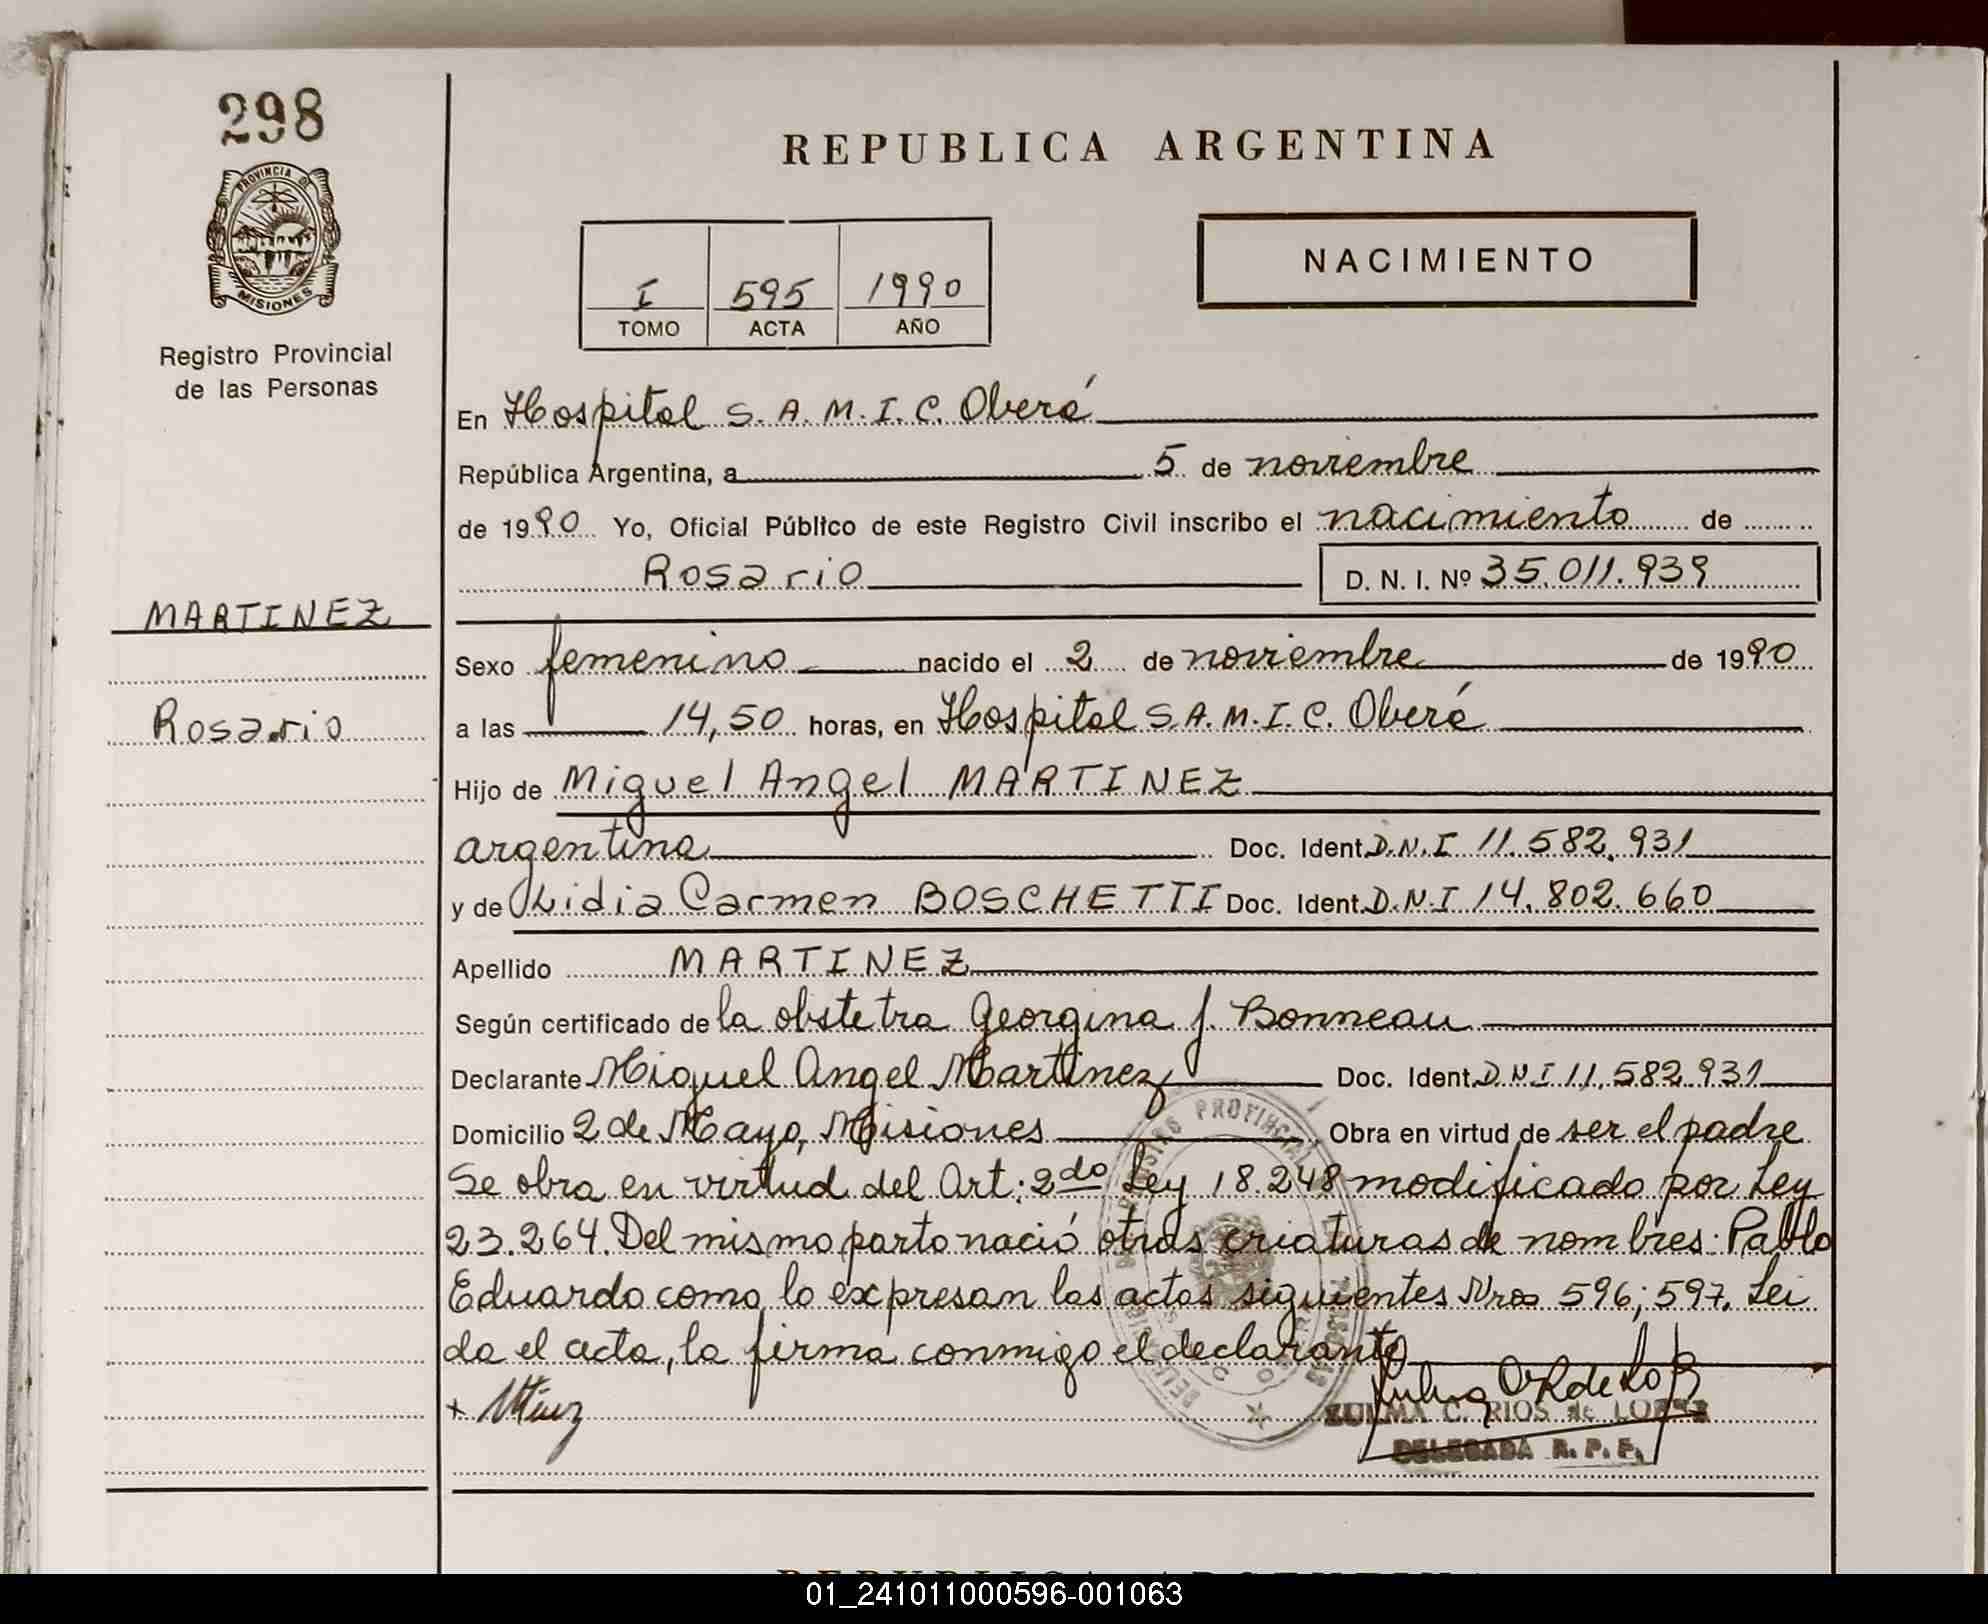 298
PROVINCIA DE
MISIONES
Registro Provincial
de las Personas
MARTINEZ
Rosario
REPUBLICA ARGENTINA
I 595 1990
TOMO ACTA AÑO
NACIMIENTO
En Hospital S.A.M.I.C. Oberá
República Argentina, a 5 de noviembre
de 1990 Yo, Oficial Público de este Registro Civil inscribo el nacimiento de
Rosario D. N. I. Nº 35.011.939
Sexo femenino nacido el 2 de noviembre de 1990
a las 14,50 horas, en Hospital S.A.M.I.C. Oberá
Hijo de Miguel Angel MARTINEZ
argentina Doc. Ident. D.N.I 11.582.931
y de Lidia Carmen BOSCHETTI Doc. Ident. D.N.I 14.802.660
Apellido MARTINEZ
Según certificado de la obstetra Georgina J. Bonneau
Declarante Miguel Angel Martinez Doc. Ident. D N I 11.582.931
Domicilio 2 de Mayo, Misiones Obra en virtud de ser el padre
Se obra en virtud del Art: 2do Ley 18.248 modificado por Ley
23.264. Del mismo parto nació otras criaturas de nombres: Pablo
Eduardo como lo expresan las actas siguientes Nros 596; 597. Lei
da el acta, la firma conmigo el declarante
ZULMA C. RIOS de LOPEZ
DELEGADA R. P. P.
REPUBLICA ARGENTINA
01_241011000596-001063